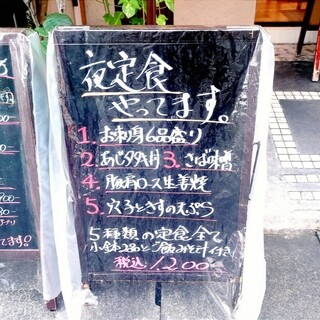 夜定食
やってます。
1. お刺身6品盛り
2. あじタタキ 3. さば味噌
4. 豚肩ロース生姜焼
5. 穴子ときすの天ぷら
5種類の定食全て
小鉢2品とご飯みそ汁付き
税込 1200